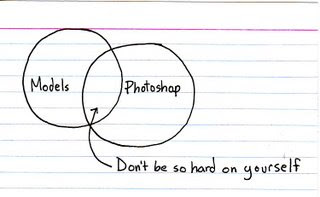 Models
Photoshop
Don't be so hard on yourself